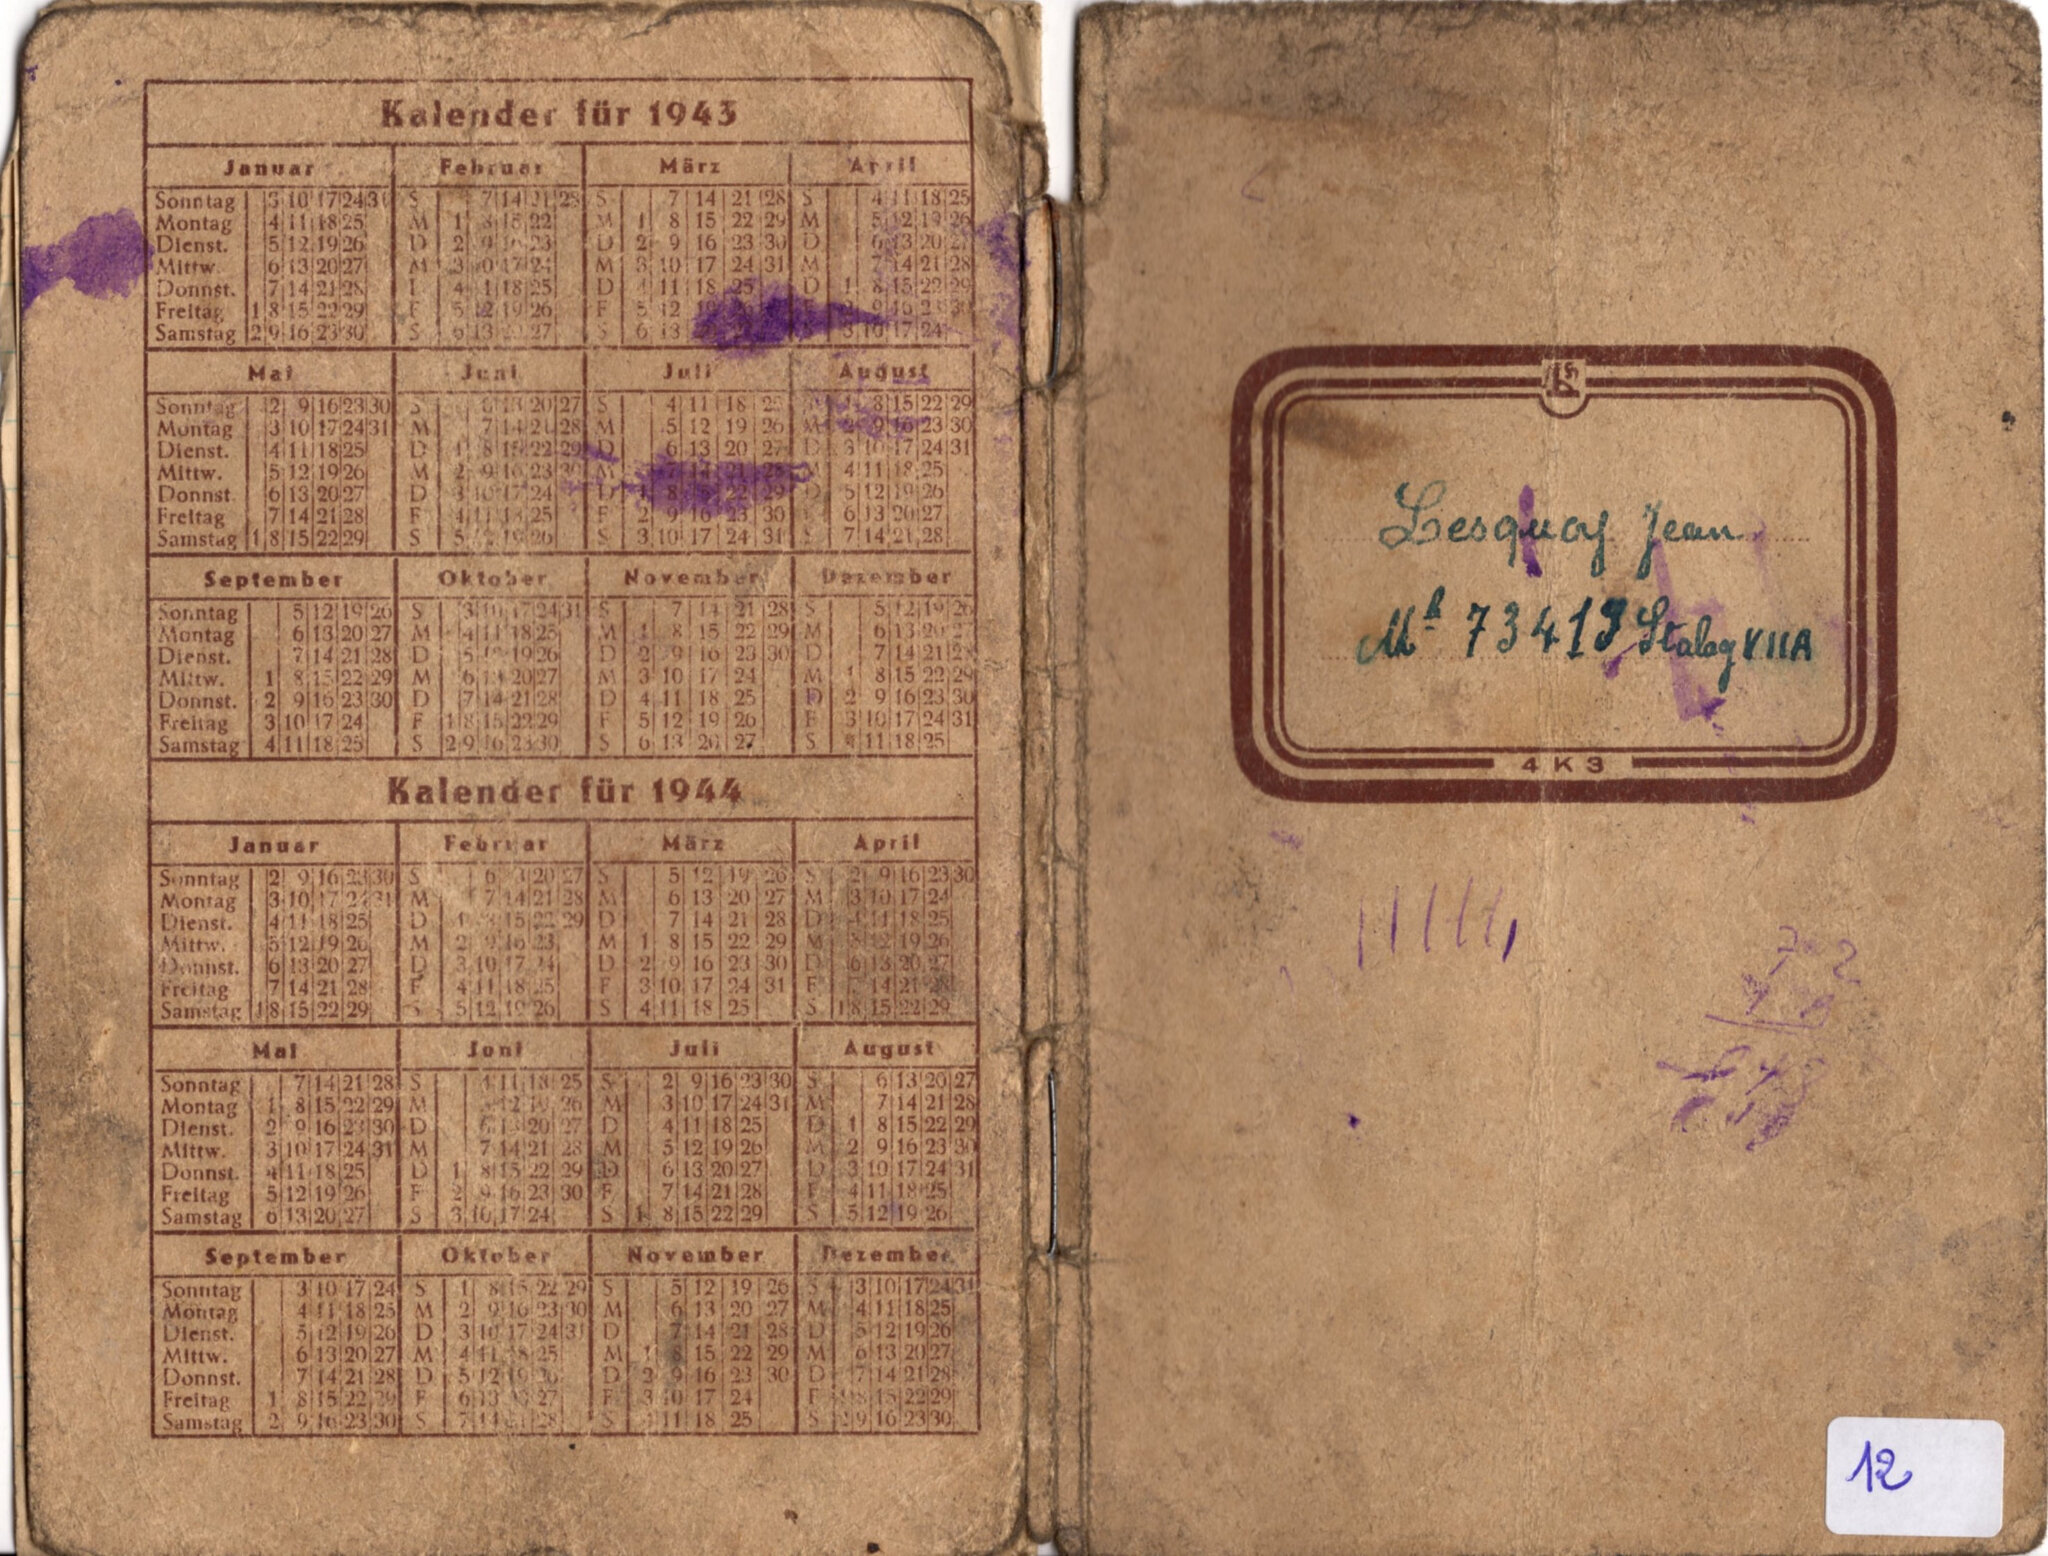 Kalender für 1943
Januar Februar März April
Sonntag 3 10 17 24 31 S 7 14 21 28 S 7 14 21 28 S 4 11 18 25
Montag 4 11 18 25 M 1 8 15 22 M 1 8 15 22 29 M 5 12 19 26
Dienst. 5 12 19 26 D 2 9 16 23 D 2 9 16 23 30 D 6 13 20 27
Mittw. 6 13 20 27 M 3 10 17 24 M 3 10 17 24 31 M 7 14 21 28
Donnst. 7 14 21 28 D 4 11 18 25 D 4 11 18 25 D 1 8 15 22 29
Freitag 1 8 15 22 29 F 5 12 19 26 F 5 12 19 26 F 2 9 16 23 30
Samstag 2 9 16 23 30 S 6 13 20 27 S 6 13 S 3 10 17 24
Mai Juni Juli August
Sonntag 2 9 16 23 30 S 6 13 20 27 S 4 11 18 25 S 1 8 15 22 29
Montag 3 10 17 24 31 M 7 14 21 28 M 5 12 19 26 M 2 9 16 23 30
Dienst. 4 11 18 25 D 1 8 15 22 29 D 6 13 20 27 D 3 10 17 24 31
Mittw. 5 12 19 26 M 2 9 16 23 30 M 7 14 21 28 M 4 11 18 25
Donnst. 6 13 20 27 D 3 10 17 24 D 1 8 15 22 29 D 5 12 19 26
Freitag 7 14 21 28 F 4 11 18 25 F 2 9 16 23 30 6 13 20 27
Samstag 1 8 15 22 29 S 5 12 19 26 S 3 10 17 24 31 S 7 14 21 28
September Oktober November Dezember
Sonntag 5 12 19 26 S 3 10 17 24 31 S 7 14 21 28 S 5 12 19 26
Montag 6 13 20 27 M 4 11 18 25 M 1 8 15 22 29 M 6 13 20 27
Dienst. 7 14 21 28 D 5 12 19 26 D 2 9 16 23 30 D 7 14 21 28
Mittw. 1 8 15 22 29 M 6 13 20 27 M 3 10 17 24 M 1 8 15 22 29
Donnst. 2 9 16 23 30 D 7 14 21 28 D 4 11 18 25 D 2 9 16 23 30
Freitag 3 10 17 24 F 1 8 15 22 29 F 5 12 19 26 F 3 10 17 24 31
Samstag 4 11 18 25 S 2 9 16 23 30 S 6 13 20 27 S 4 11 18 25
Kalender für 1944
Januar Februar März April
Sonntag 2 9 16 23 30 S 6 13 20 27 S 5 12 19 26 S 2 9 16 23 30
Montag 3 10 17 24 31 M 7 14 21 28 M 6 13 20 27 M 3 10 17 24
Dienst. 4 11 18 25 D 1 8 15 22 29 D 7 14 21 28 D 4 11 18 25
Mittw. 5 12 19 26 M 2 9 16 23 M 1 8 15 22 29 M 5 12 19 26
Donnst. 6 13 20 27 D 3 10 17 24 D 2 9 16 23 30 D 6 13 20 27
Freitag 7 14 21 28 F 4 11 18 25 F 3 10 17 24 31 F 7 14 21 28
Samstag 1 8 15 22 29 S 5 12 19 26 S 4 11 18 25 S 1 8 15 22 29
Mai Juni Juli August
Sonntag 7 14 21 28 S 4 11 18 25 S 2 9 16 23 30 S 6 13 20 27
Montag 1 8 15 22 29 M 5 12 19 26 M 3 10 17 24 31 M 7 14 21 28
Dienst. 2 9 16 23 30 D 6 13 20 27 D 4 11 18 25 D 1 8 15 22 29
Mittw. 3 10 17 24 31 M 7 14 21 28 M 5 12 19 26 M 2 9 16 23 30
Donnst. 4 11 18 25 D 1 8 15 22 29 D 6 13 20 27 D 3 10 17 24 31
Freitag 5 12 19 26 F 2 9 16 23 30 F 7 14 21 28 F 4 11 18 25
Samstag 6 13 20 27 S 3 10 17 24 S 1 8 15 22 29 S 5 12 19 26
September Oktober November Dezember
Sonntag 3 10 17 24 S 1 8 15 22 29 S 5 12 19 26 S 3 10 17 24 31
Montag 4 11 18 25 M 2 9 16 23 30 M 6 13 20 27 M 4 11 18 25
Dienst. 5 12 19 26 D 3 10 17 24 31 D 7 14 21 28 D 5 12 19 26
Mittw. 6 13 20 27 M 4 11 18 25 M 1 8 15 22 29 M 6 13 20 27
Donnst. 7 14 21 28 D 5 12 19 26 D 2 9 16 23 30 D 7 14 21 28
Freitag 1 8 15 22 29 F 6 13 20 27 F 3 10 17 24 F 1 8 15 22 29
Samstag 2 9 16 23 30 S 7 14 21 28 S 4 11 18 25 S 2 9 16 23 30
Lesquoy Jean
Mle 73413 Stalag VIIA
4 K 3
12